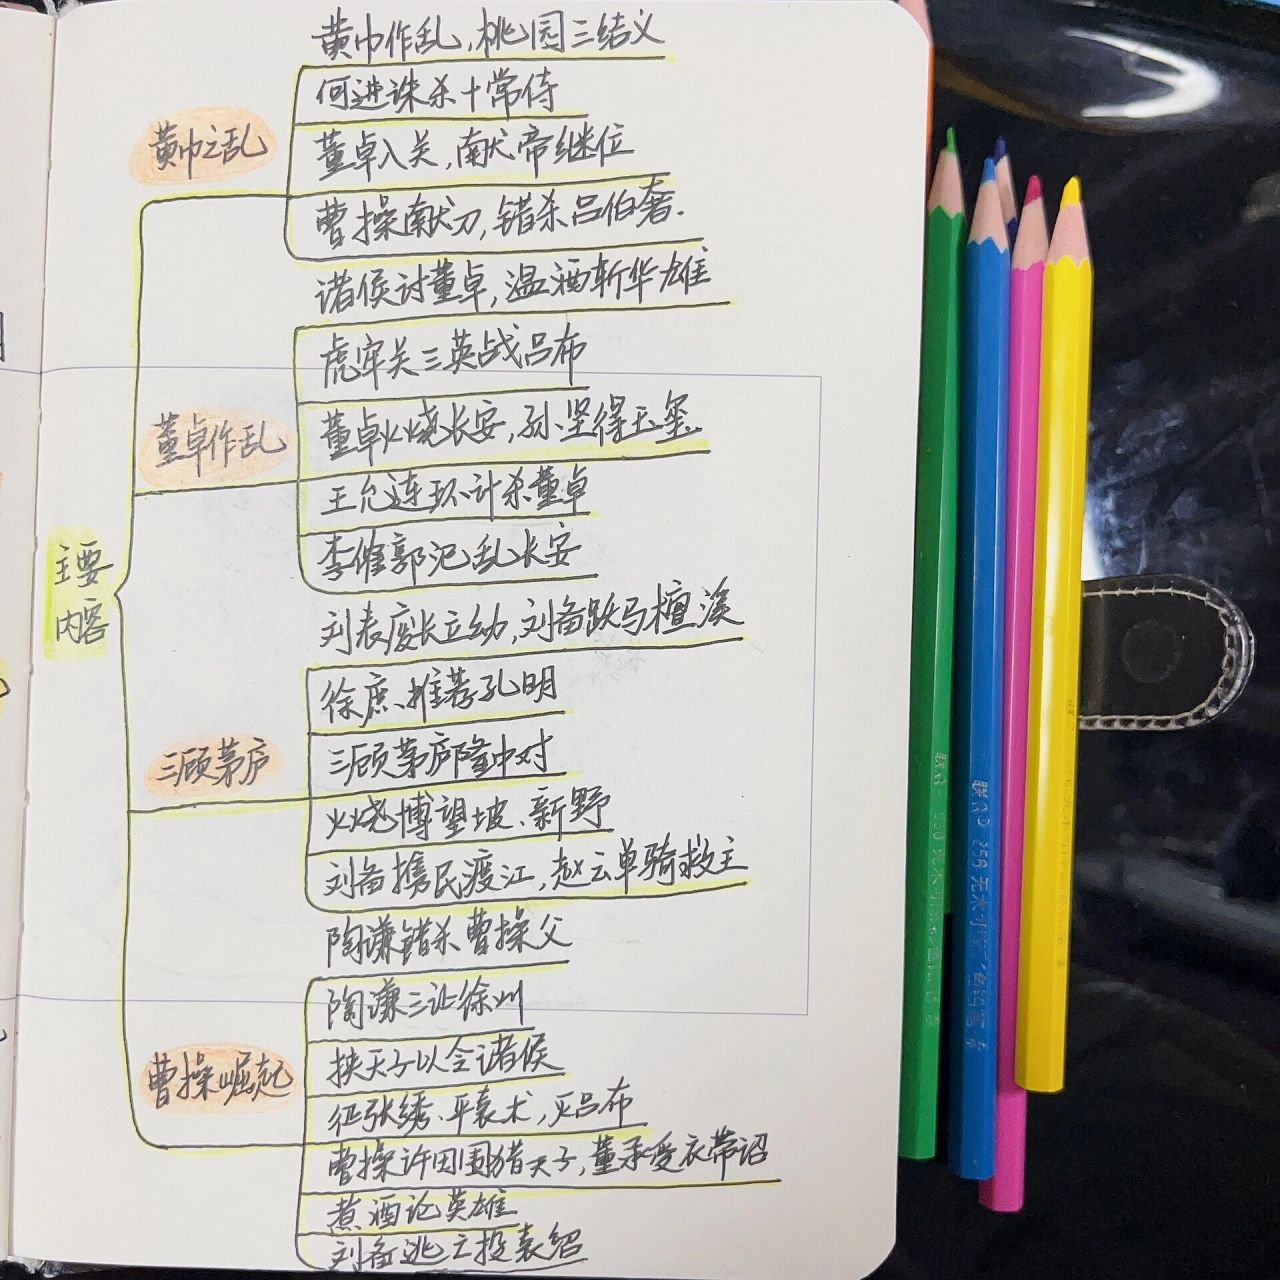 黄巾作乱,桃园三结义
何进诛杀十常侍
黄巾之乱
董卓入关,献帝继位
曹操献刀,错杀吕伯奢.
诸侯讨董卓,温酒斩华雄
虎牢关三英战吕布
董卓作乱
董卓火烧长安,孙坚得玉玺.
王允连环计杀董卓
李傕郭汜乱长安
主要
内容
刘表废长立幼,刘备跃马檀溪
徐庶推荐孔明
三顾茅庐
三顾茅庐隆中对
火烧博望坡、新野
刘备携民渡江,赵云单骑救主
陶谦错杀曹操父
陶谦三让徐州
曹操崛起
挟天子以令诸侯
征张绣、平袁术,灭吕布
曹操许田围猎天子,董承受衣带诏
煮酒论英雄
刘备逃亡投袁绍